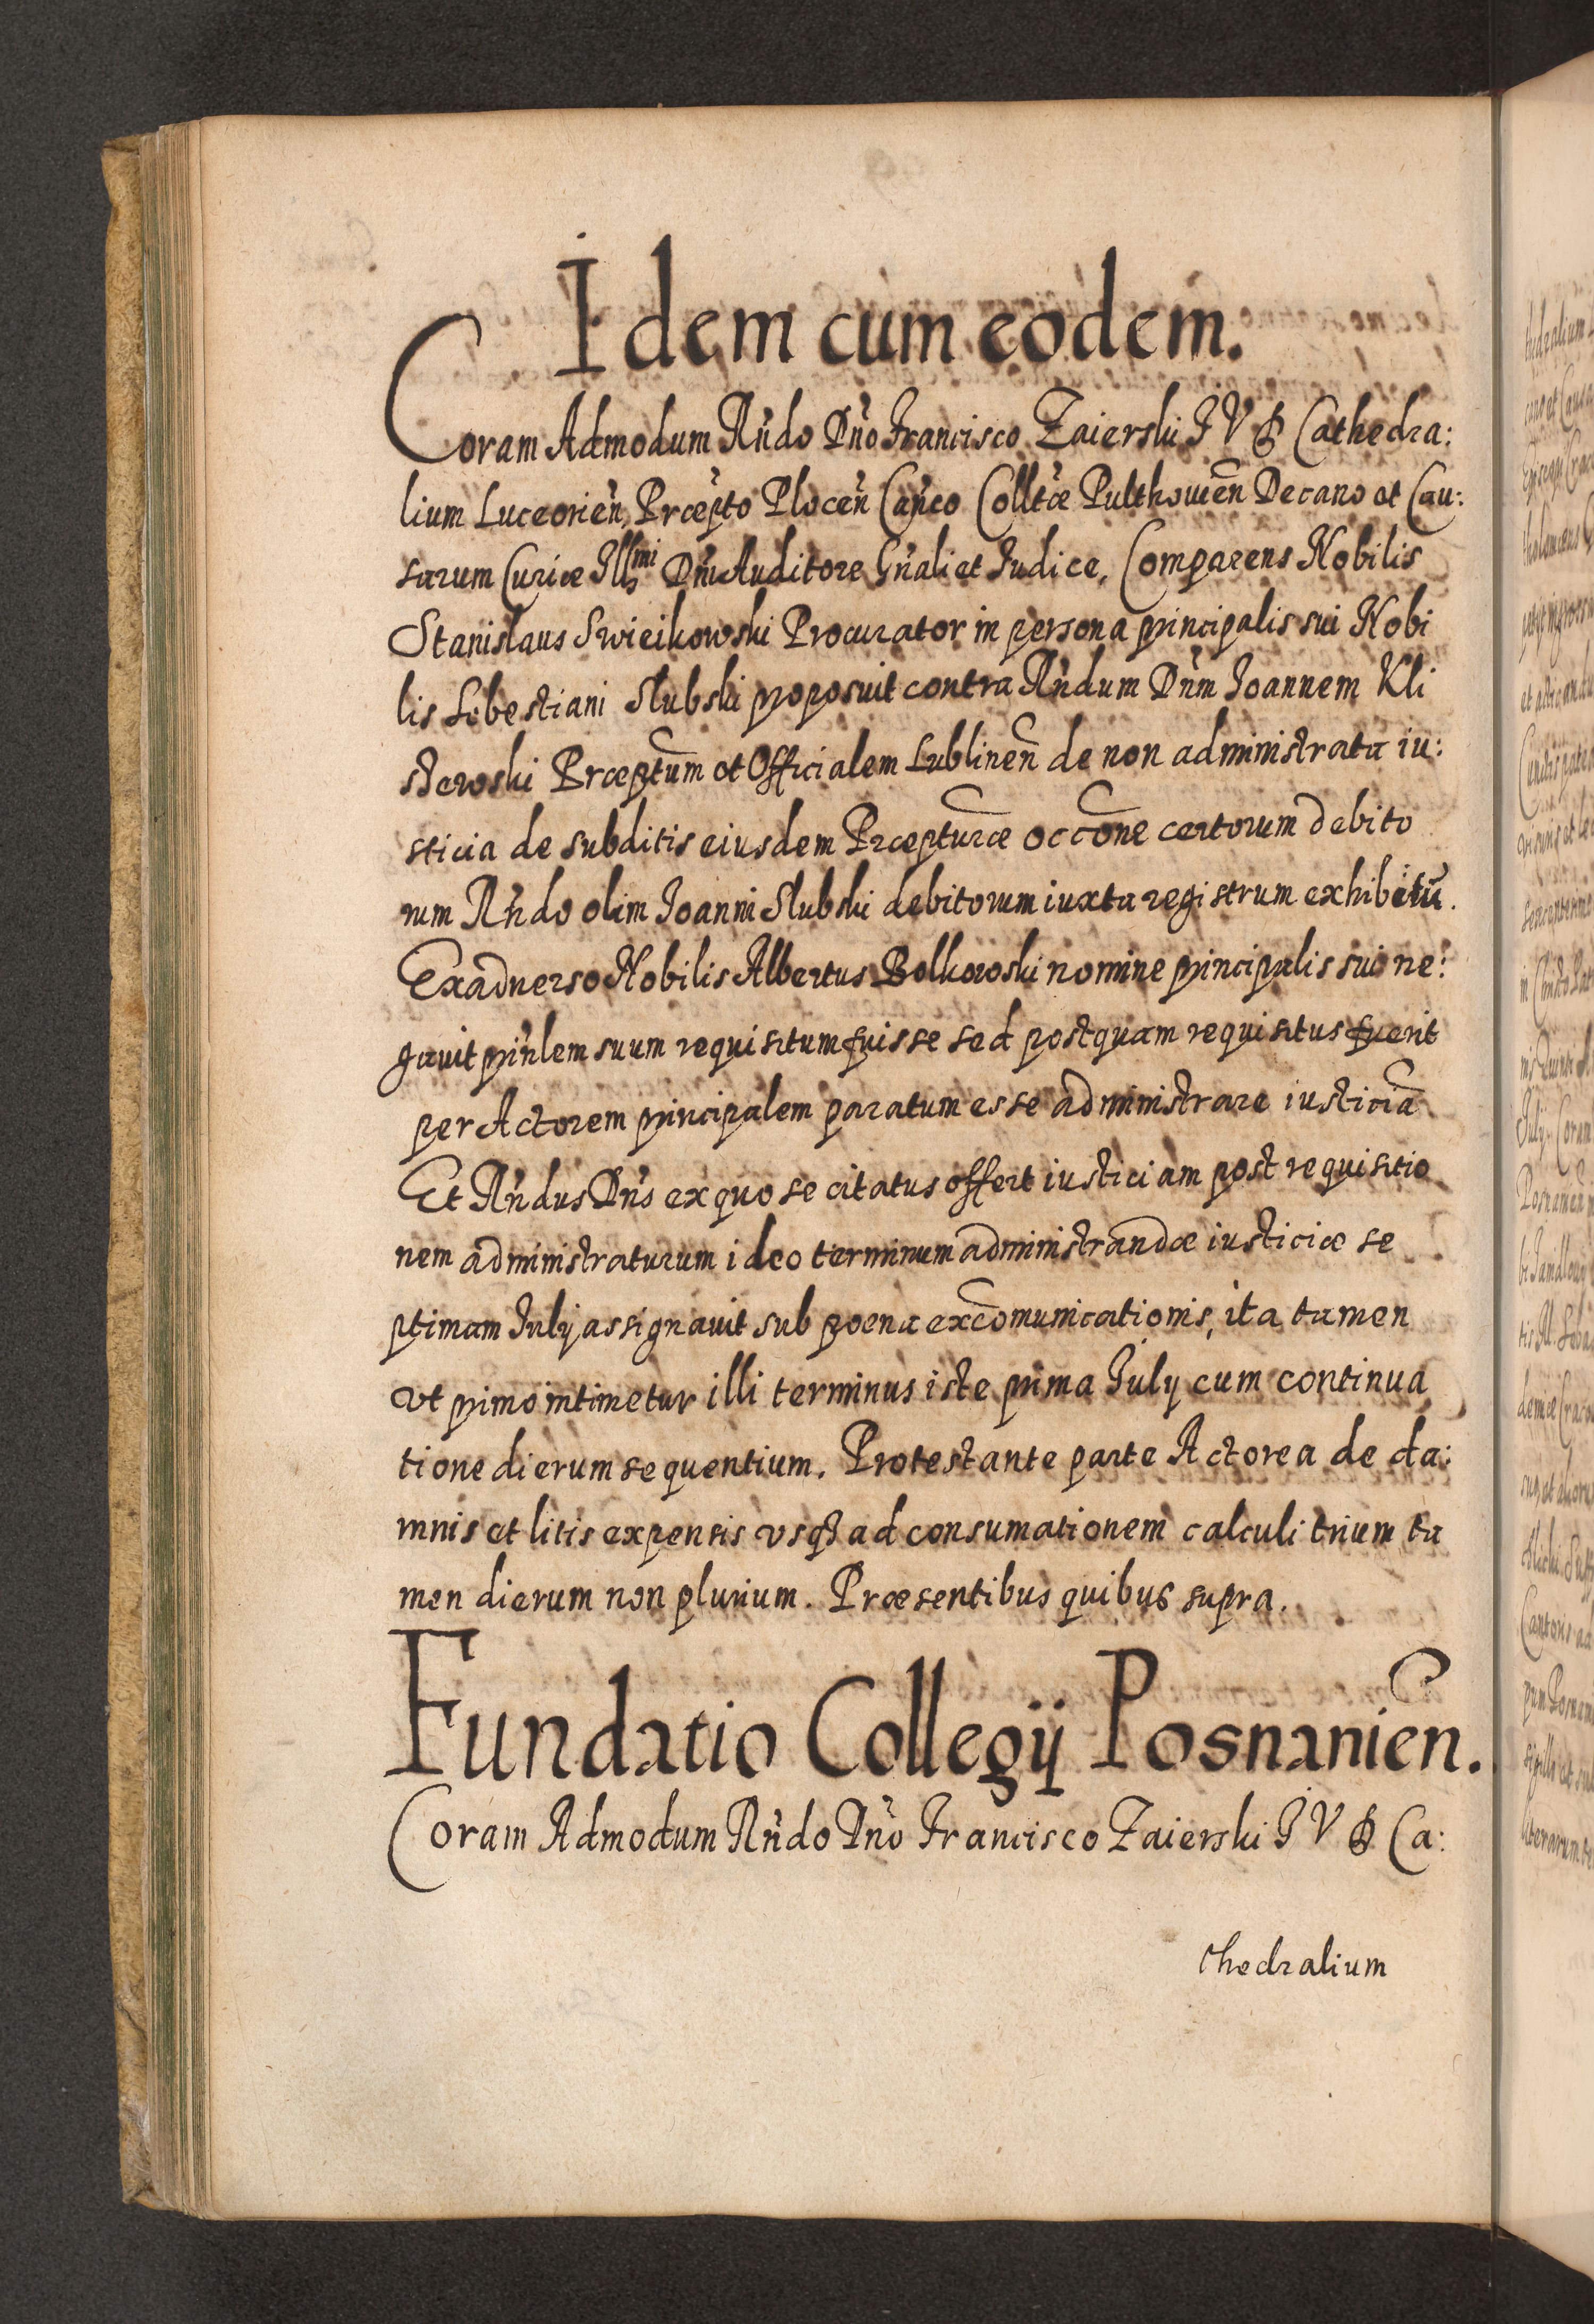 Idem cum eodem.
Coram Admodum Rñdo Dño Francisco Zaierski I V D Cathedra:
lium Luceorieñ, Præpto Ploceñ Cañco Colltæ Pulthouieñ Decano et Cau:
sarum Curiæ Illmi Dñi Auditore Gñali et Iudice, Comparens Nobilis
Stanislaus Swieikowski Procurator in persona principalis sui Nobi
lis Sebestiani Slubski proposuit contra Rñdum Dñm Ioannem Kli
stewski Præptum et Officialem Lublineñ de non administrata iu:
sticia de subditis eiusdem Præpturæ occone certorum debito
rum Rñdo olim Ioanni Slubski debitorum iuxta registrum exhibitū.
Exaduerso Nobilis Albertus Bolkowski nomine principalis sui ne:
gauit prinlem suum requisitum fuisse sed postquam requisitus fuerit
per Actorem principalem paratum esse administrare iusticiā
Et Rñdus Dñs ex quo se citatus offert iusticiam post requisitio
nem administraturum ideo terminum administrandæ iusticiæ se
ptimam Iulij assignauit sub poena excomunicationis, ita tamen
vt primo intimetur illi terminus iste prima Iuly cum continua
tione dierum sequentium. Protestante parte Actorea de da:
mnis et litis expensis vsq3 ad consumationem calculi trium ta
men dierum non plurium. Præsentibus quibus supra.
Fundatio Collegij Posnanieñ.
Coram Admodum Rñdo Dño Francisco Zaierski I V D Ca:
thedralium